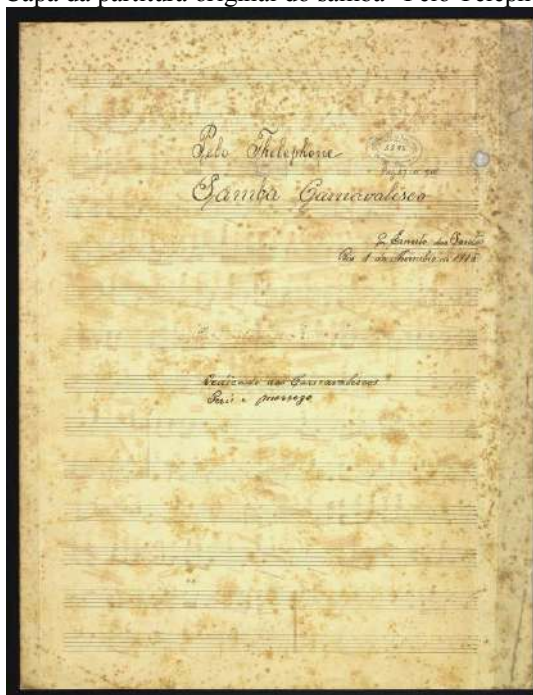 Capa da partitura original do samba "Pelo Teleph
Pelo Thelephone
Samba Carnavalisco
Ernesto dos Santos
Rio 1 de Novembro de 1916
Dedicado aos Carnavalescos
Perú e morcego